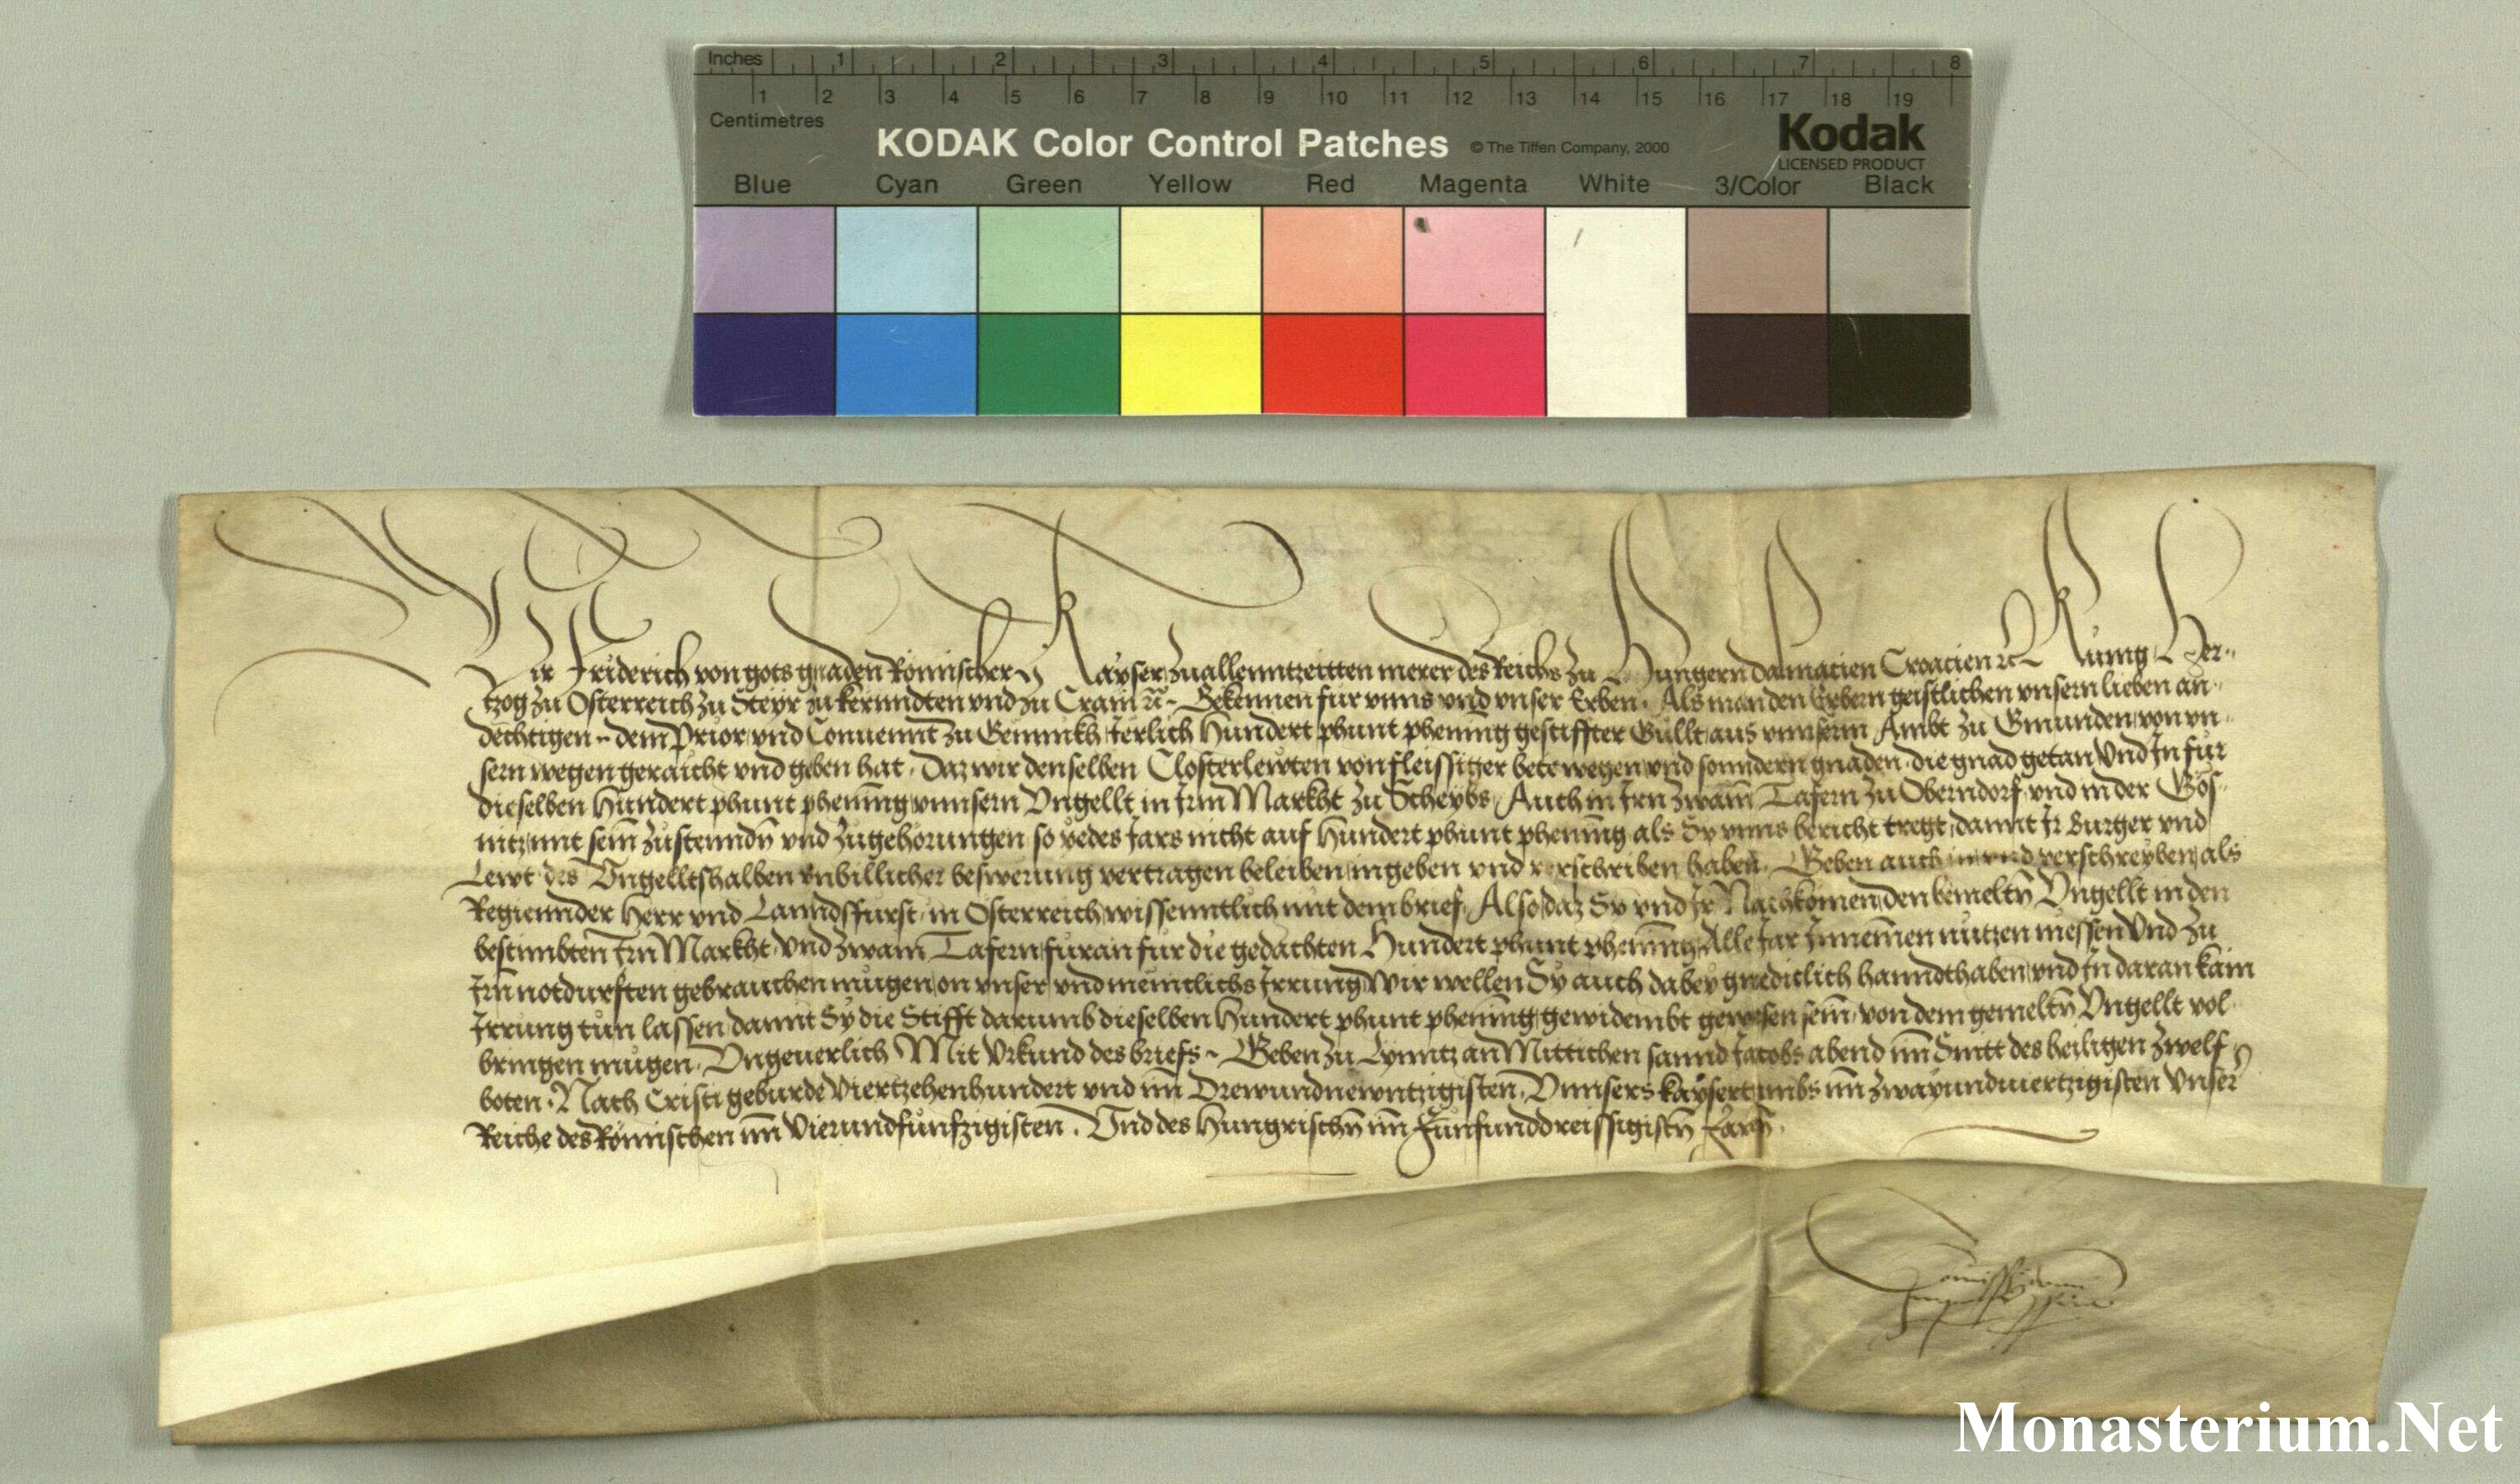 Inches 1 2 3 4 5 6 7 8
1 2 3 4 5 6 7 8 9 10 11 12 13 14 15 16 17 18 19
Centimetres
KODAK Color Control Patches © The Tiffen Company, 2000 Kodak
LICENSED PRODUCT
Blue Cyan Green Yellow Red Magenta White 3/Color Black
Wir Friderich von gots gnaden Römischer Kayser zuallenntzeitten merer des Reichs zu Hungern Dalmacien Croacien rc Kunig Her-
tzog zu Osterreich zu Steyr zu kernndten vnd zu Crain rc - Bekennen fur vnns vnd vnser Erben. Als man den Erbern geistlichen vnsern lieben an-
dechtigen - dem Prior vnd Conuennt zu Gemnikh Jerlich Hundert phunt phening gestiffter Gullt aus vnnserm Ambt zu Gmunden von vn-
sern wegen geraicht vnd geben hat. Daz wir denselben Closterlewten von fleissiger bete wegen vnd sonndern gnaden die gnad getan Vnd In fur
dieselben Hundert phunt phening vnnsern Vngellt in Irm Markht zu Scheybs, Auch in Irn zwain Tafern zu Oberndorf vnd in der Gös-
nitz mit sein zůstenndn vnd zůgehörungen so yedes Jars nicht auf Hundert phunt phening als Sy vnns bericht tregt, damit Ir Burger vnd
Lewt des Vngelltshalben vnbillicher beswerung vertragen beleiben ingeben vnd verschriben haben. Geben auch in vnd verschreyben als
Regierinder Herr vnd Lanndsfurst in Osterreich wissenntlich mit dem brief, Also daz Sy vnd Ir Nachkomen den bemeltn Vngellt in den
bestimbten Irn Markht vnd zwain Tafern furan fur die gedachten Hundert phunt phening Alle Jar Innemen nutzen niessen Vnd zu
Irn notdurften gebrauchen mugen on vnser vnd menntlichs Irrung Wir wellen Sy auch dabey gnediclich hanndthaben vnd In daran kain
Irrung tun lassen damit Sy die Stifft darumb dieselben Hundert phunt phening gewidembt gewesen sein, von dem gemeltn Vngellt vol-
bringen mugen. Vngeuerlich Mit Vrkund des briefs - Geben zu Lynntz an Mittichen sannd Jacobs abend im Snitt des heiligen zwelf
boten. Nach Cristi geburde Viertzehenhundert vnd im Drewundnewntzigisten, Vnnsers kaysertumbs im zwayundviertzigisten Vnser
Reiche des Römischen im Vierundfunfzigisten. Vnd des Hungrischn im Funfunddreissigistn Jarn.
Comissio domini
Imperatoris
Monasterium.Net